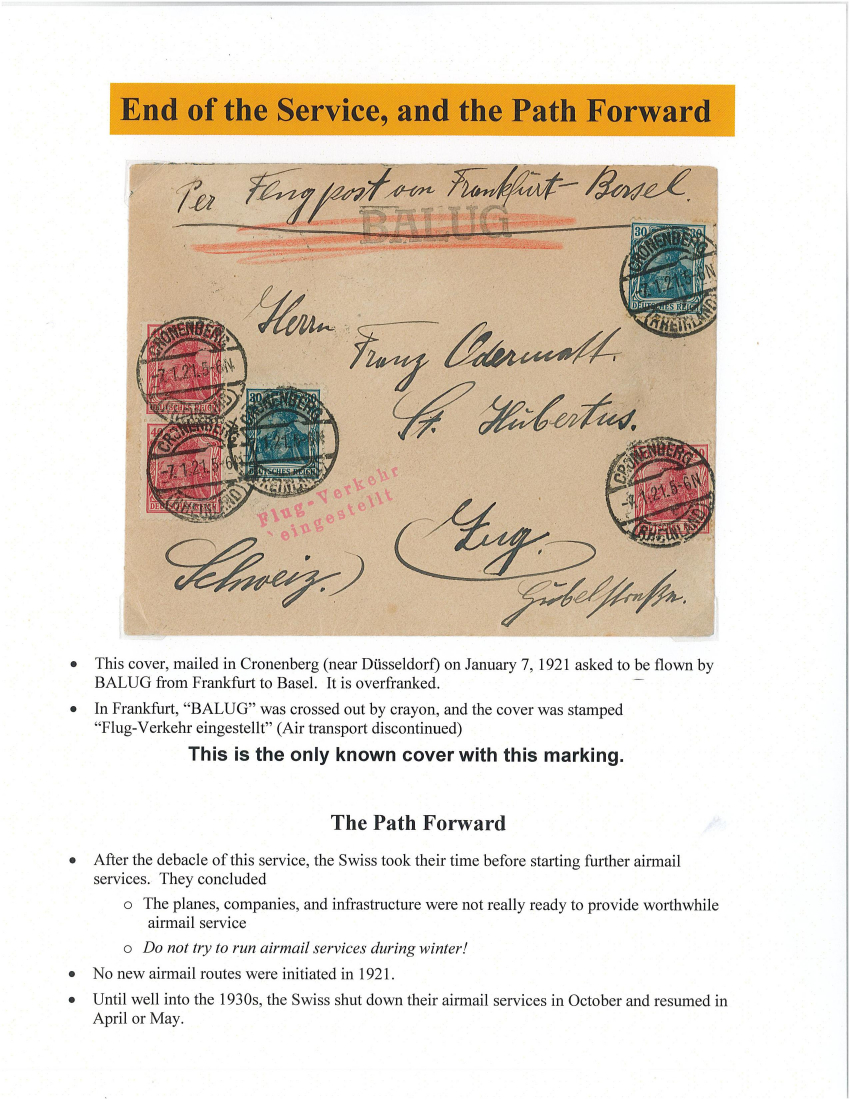 End of the Service, and the Path Forward
Per Flugpost von Frankfurt - Basel.
BALUG
30 30
CRONENBERG
-7.1.21.5-6N
(RHEINLAND)
DEUTSCHES REICH
Herrn
Franz Odermatt.
St. Hubertus.
CRONENBERG
-7.1.21.5-6N
DEUTSCHES REICH
30
CRONENBERG
DEUTSCHES REICH
(RHEINLAND)
40
CRONENBERG
-7.1.21.5-6N
(RHEINLAND)
CRONENBERG
-7.1.21.5-6N
(RHEINLAND)
Flug-Verkehr
eingestellt
Zug.
Schweiz.)
Gubelstraße.
• This cover, mailed in Cronenberg (near Düsseldorf) on January 7, 1921 asked to be flown by
BALUG from Frankfurt to Basel. It is overfranked.
• In Frankfurt, “BALUG” was crossed out by crayon, and the cover was stamped
“Flug-Verkehr eingestellt” (Air transport discontinued)
This is the only known cover with this marking.
The Path Forward
• After the debacle of this service, the Swiss took their time before starting further airmail
services. They concluded
o The planes, companies, and infrastructure were not really ready to provide worthwhile
airmail service
o Do not try to run airmail services during winter!
• No new airmail routes were initiated in 1921.
• Until well into the 1930s, the Swiss shut down their airmail services in October and resumed in
April or May.